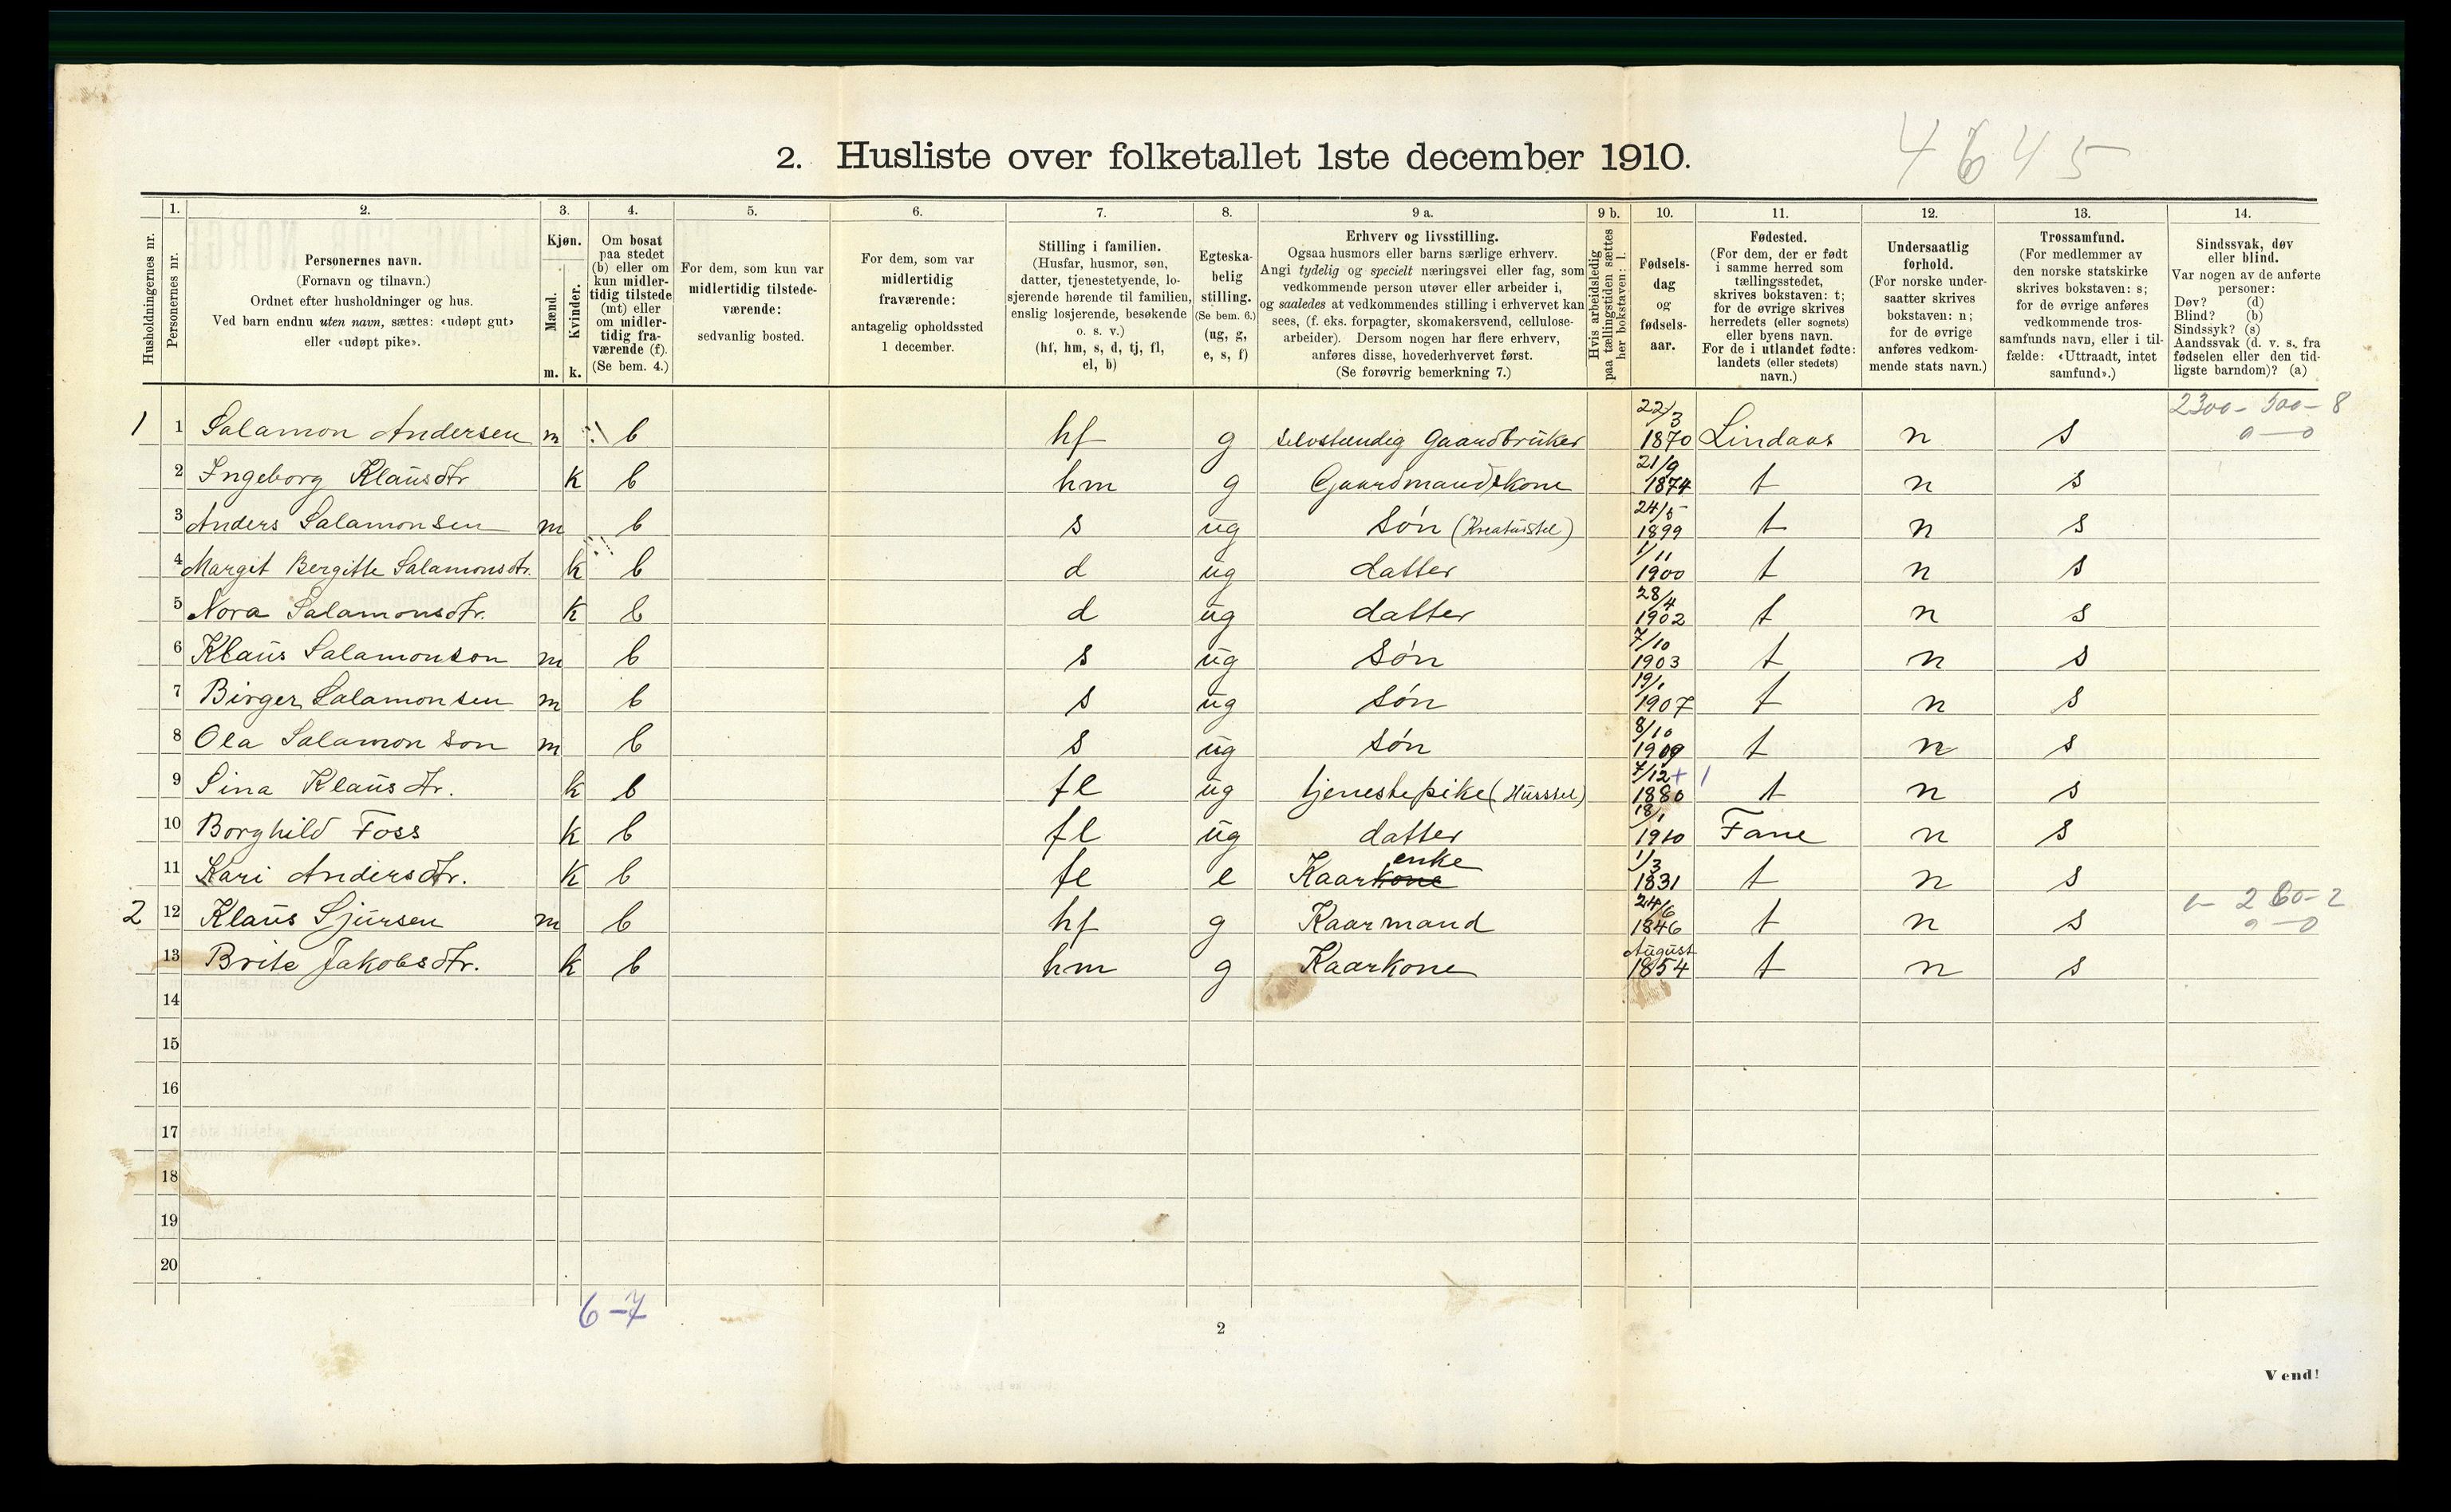 4645
2. Husliste over folketallet 1ste december 1910.
Husholdningernes nr.
1.
Personernes nr.
2.
Personernes navn.
(Fornavn og tilnavn.)
Ordnet efter husholdninger og hus.
Ved barn endnu uten navn, sættes: «udøpt gut»
eller «udøpt pike».
3.
Kjøn.
Mænd.
Kvinder.
m. k.
4.
Om bosat
paa stedet
(b) eller om
kun midler-
tidig tilstede
(mt) eller
om midler-
tidig fra-
værende (f).
(Se bem. 4.)
5.
For dem, som kun var
midlertidig tilstede-
værende:
sedvanlig bosted.
6.
For dem, som var
midlertidig
fraværende:
antagelig opholdssted
1 december.
7.
Stilling i familien.
(Husfar, husmor, søn,
datter, tjenestetyende, lo-
sjerende hørende til familien,
enslig losjerende, besøkende
o. s. v.)
(hf, hm, s, d, tj, fl,
el, b)
8.
Egteska-
belig
stilling.
(Se bem. 6.)
(ug, g,
e, s, f)
9 a.
Erhverv og livsstilling.
Ogsaa husmors eller barns særlige erhverv.
Angi tydelig og specielt næringsvei eller fag, som
vedkommende person utøver eller arbeider i,
og saaledes at vedkommendes stilling i erhvervet kan
sees, (f. eks. forpagter, skomakersvend, cellulose-
arbeider). Dersom nogen har flere erhverv,
anføres disse, hovederhvervet først.
(Se forøvrig bemerkning 7.)
9 b.
Hvis arbeidsledig
paa tællingstiden sættes
her bokstaven: l.
10.
Fødsels-
dag
og
fødsels-
aar.
11.
Fødested.
(For dem, der er født
i samme herred som
tællingsstedet,
skrives bokstaven: t;
for de øvrige skrives
herredets (eller sognets)
eller byens navn.
For de i utlandet fødte:
landets (eller stedets)
navn.)
12.
Undersaatlig
forhold.
(For norske under-
saatter skrives
bokstaven: n;
for de øvrige
anføres vedkom-
mende stats navn.)
13.
Trossamfund.
(For medlemmer av
den norske statskirke
skrives bokstaven: s;
for de øvrige anføres
vedkommende tros-
samfunds navn, eller i til-
fælde: «Uttraadt, intet
samfund».)
14.
Sindssvak, døv
eller blind.
Var nogen av de anførte
personer:
Døv? (d)
Blind? (b)
Sindssyk? (s)
Aandssvak (d. v. s. fra
fødselen eller den tid-
ligste barndom)? (a)
2300 - 500 - 8
0 — 0
1 1 Salamon Andersen m b hf g selvstændig Gaardbruker 22/3 1870 Lindaas n s
2 Ingeborg Klausdtr k b hm g Gaardmandskone 21/9 1874 t n s
3 Anders Salamonsen m b s ug Søn (Kreaturstel) 24/5 1899 t n s
4 Margit Bergitte Salamonsdtr. k b d ug datter 1/11 1900 t n s
5 Nora Salamonsdtr. k b d ug datter 28/4 1902 t n s
6 Klaus Salamonson m b s ug Søn 7/10 1903 t n s
7 Birger Salamonsen m b s ug Søn 19/1 1907 t n s
8 Ola Salamonson m b s ug Søn 8/10 1909 t n s
9 Sina Klausdtr. k b fl ug tjenestepike (Husstel) 7/12 1880 t n s
10 Borghild Foss k b fl ug datter 18/1 1910 Fane n s
11 Kari Andersdtr. k b fl e Kaarkone enke 1/3 1831 t n s
2 12 Klaus Sjursen m b hf g Kaarmand 24/6 1846 t n s
13 Brite Jakobsdtr. k b hm g Kaarkone August 1854 t n s
14
15
16
17
18
19
20
6-7
2
Vend!